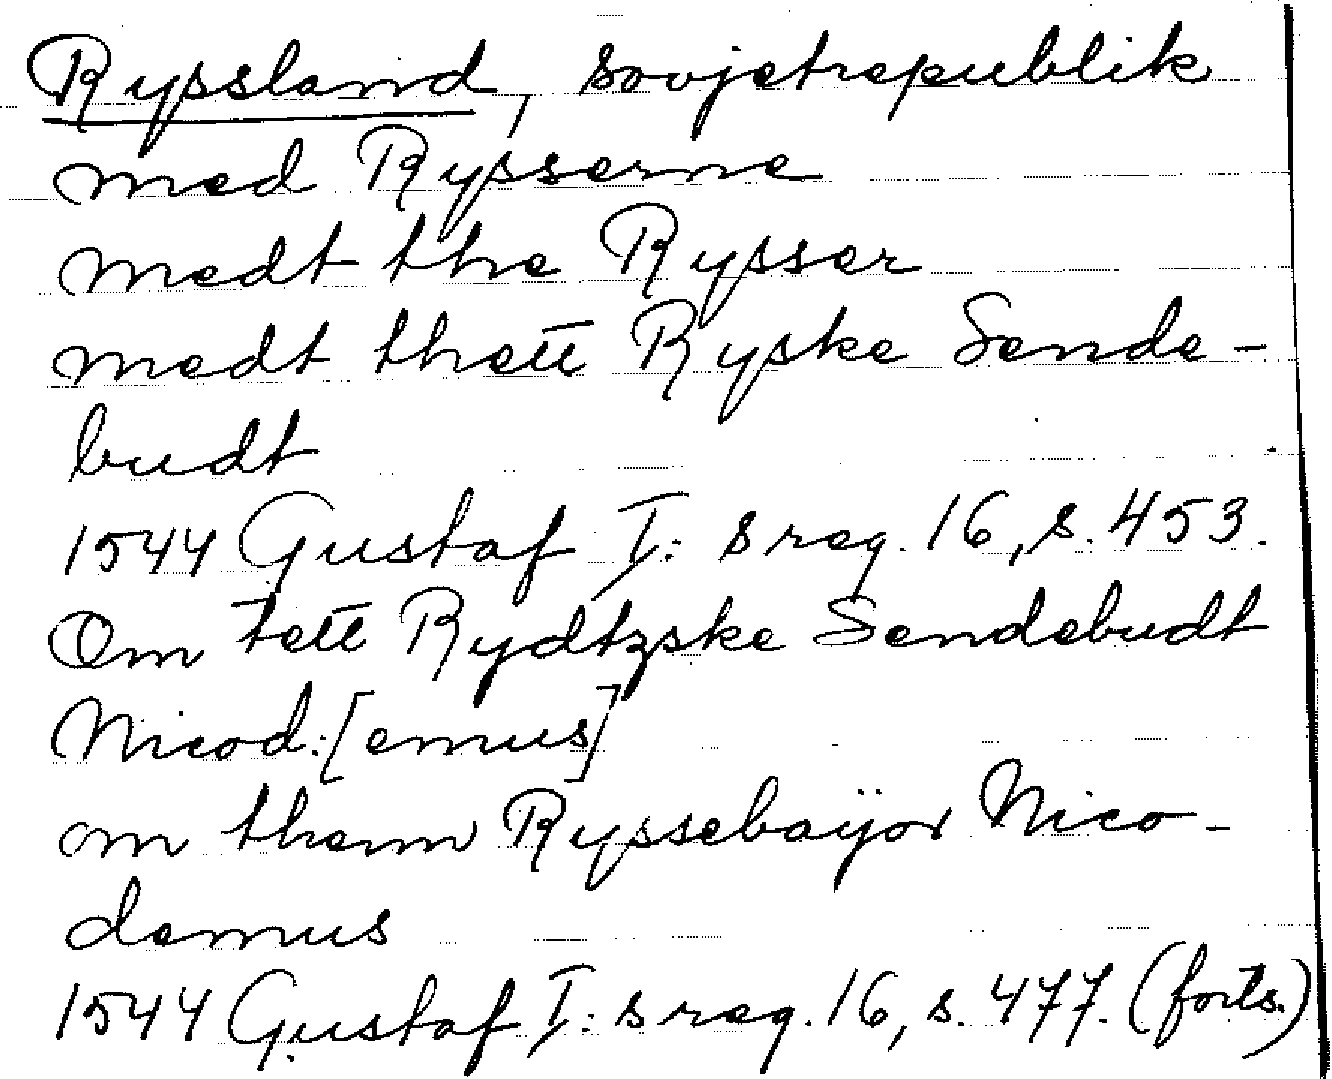 Ryssland, sovjetrepublik
med Rysserne
medt the Rysser
medt thett Ryske Sende-
budt
1544 Gustaf I: s reg. 16, s. 453.
Om tett Rydtzske Sendebudt
Nicod:[emus]
om them Ryssebayor Nico-
demus
1544 Gustaf I: s reg. 16, s. 477. (forts.)